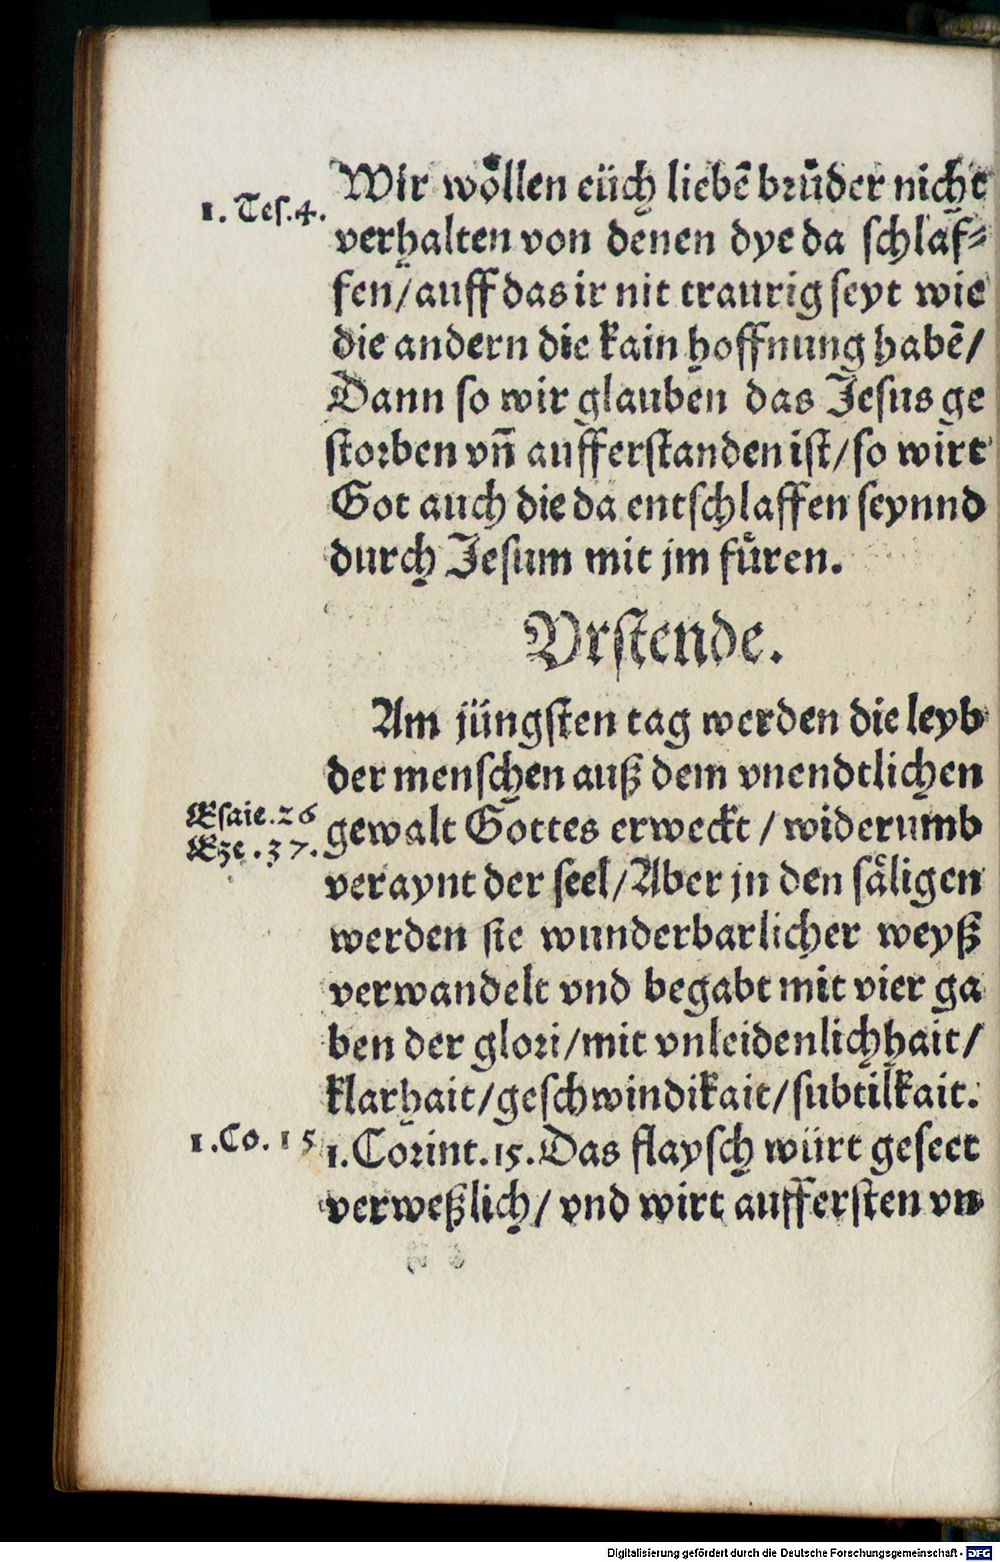 Wir wöllen eüch liebē brůder nicht
1. Tes. 4.
verhalten von denen dye da schlaf⸗
fen/auff das ir nit traurig seyt wie
die andern die kain hoffnung habē/
Dann so wir glauben das Jesus ge
storben vn̄ aufferstanden ist/so wirt
Got auch die da entschlaffen seynnd
durch Jesum mit jm fůren.
Vrstende.
Am jüngsten tag werden die leyb
der menschen auß dem vnendtlichen
Esaie. 26
gewalt Gottes erweckt / widerumb
Eze. 37.
veraynt der seel/Aber jn den säligen
werden sie wunderbarlicher weyß
verwandelt vnd begabt mit vier ga
ben der glori/mit vnleidenlichhait/
klarhait/geschwindikait/subtilkait.
1. Co. 15
1. Corint. 15. Das flaysch würt geseet
verweßlich/ vnd wirt auffersten vn
Digitalisierung gefördert durch die Deutsche Forschungsgemeinschaft - DFG